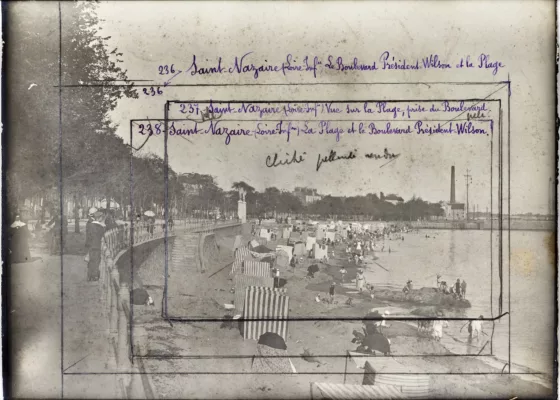 236. Saint-Nazaire (Loire-Infre) Le Boulevard Président Wilson et la Plage
236
237. Saint-Nazaire (Loire-Infre) Vue sur la Plage, prise du Boulevard
238. Saint-Nazaire (Loire-Infre) La Plage et le Boulevard Président Wilson.
Cliché pellicule